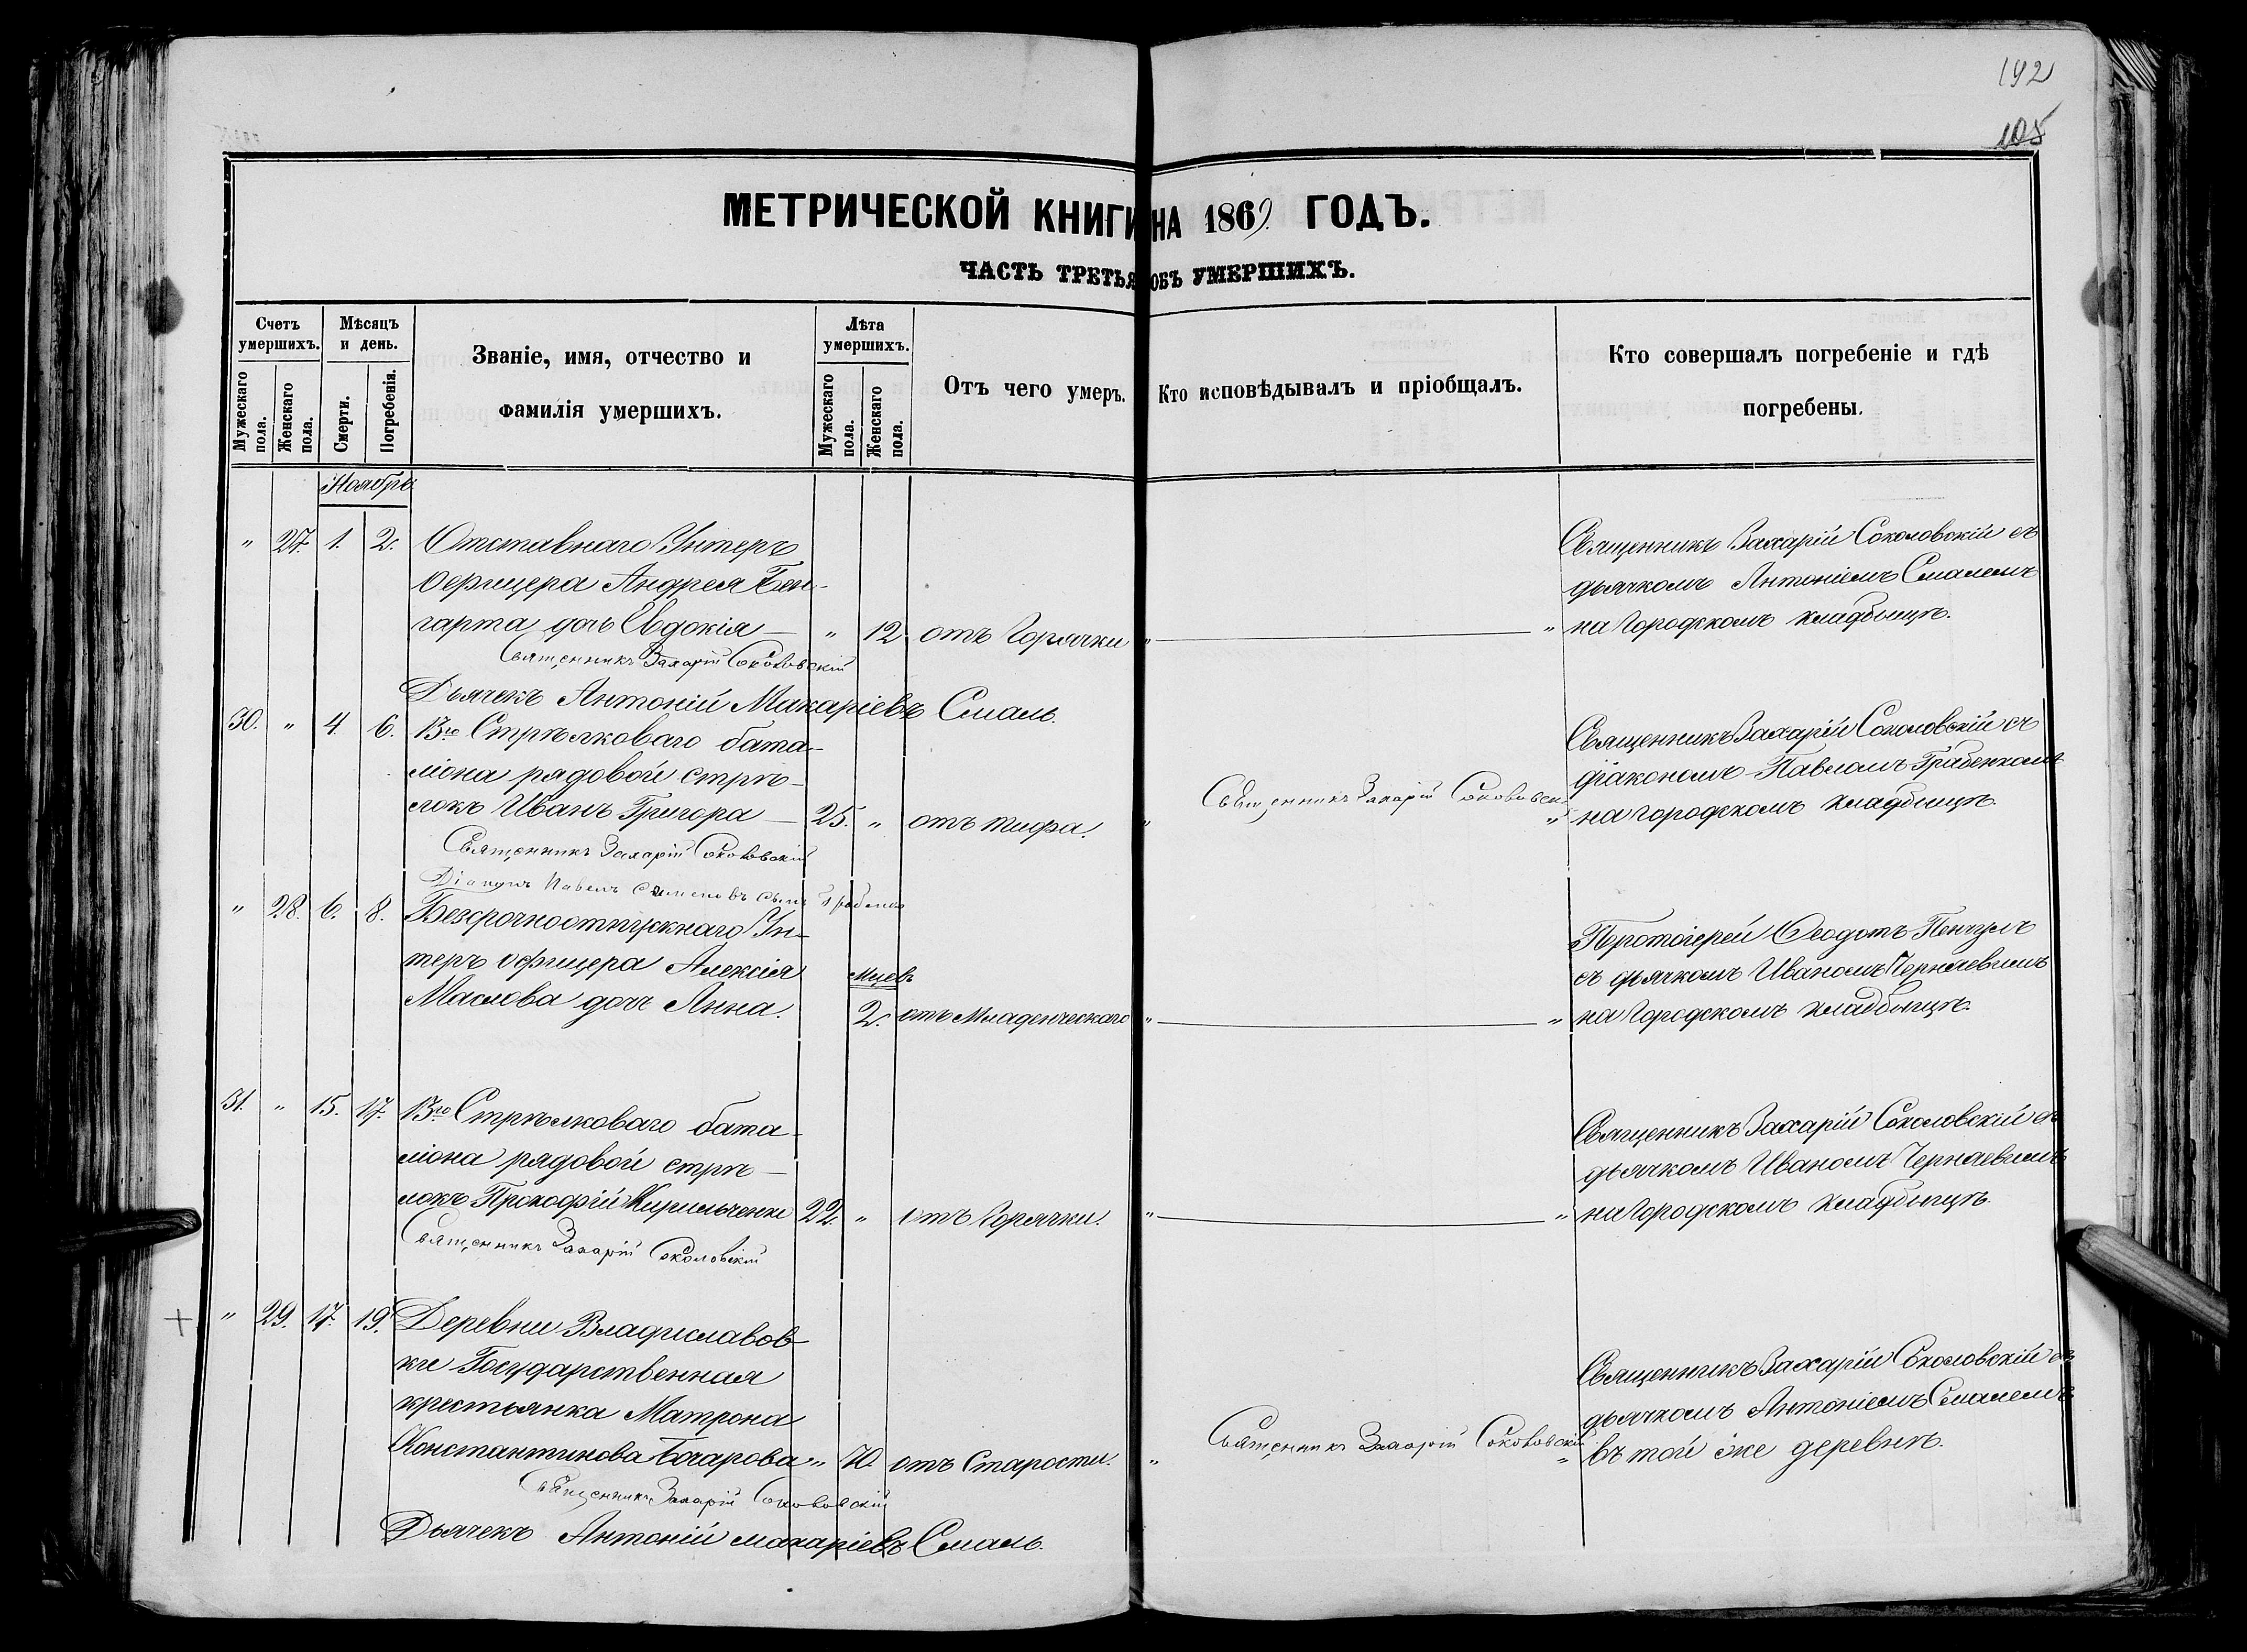 192
105
МЕТРИЧЕСКОЙ КНИГИ НА 1869 ГОДЪ.
ЧАСТЬ ТРЕТЬЯ ОБЪ УМЕРШИХЪ.
Счетъ умершихъ.
Мужескаго пола.
Женскаго пола.
Мѣсяцъ и день.
Смерти.
Погребенія.
Званіе, имя, отчество и
фамилія умершихъ.
Лѣта умершихъ.
Мужескаго пола.
Женскаго пола.
Отъ чего умеръ.
Кто исповѣдывалъ и пріобщалъ.
Кто совершалъ погребеніе и гдѣ
погребены.
Ноябрь
" 27. 1. 2. Отставнаго Унтеръ
офицера Андрея Бен-
гарта дочь Евдокія " 12 отъ Горячки " "
Священникъ Захарій Соколовскій съ
дьячкомъ Антоніемъ Смалемъ
на Городскомъ кладбищѣ.
Священникъ Захарій Соколовскій
Дьячекъ Антоній Макаріевъ Смаль.
30. " 4. 6. 13го Стрѣлковаго бата-
ліона рядовой стрѣ-
локъ Иванъ Григора 25. " отъ тифа. "
Священникъ Захарій Соколовскій "
Священникъ Захарій Соколовскій съ
діакономъ Павломъ Грабенкомъ
на городскомъ кладбищѣ.
Священникъ Захарій Соколовскій
Діаконъ Павелъ Симеоновъ сынъ Грабенко
" 28. 6. 8. Безсрочноотпускнаго Ун-
теръ офицера Алексія
Маслова дочь Анна.
Мцевъ
2. отъ Младенческаго " "
Протоіерей Ѳеодотъ
съ дьячкомъ Иваномъ Чернявимъ
на Городскомъ кладбищѣ.
31. " 15. 17. 13го Стрѣлковаго бата-
ліона рядовой стрѣ-
локъ Прокофій Кирильченко 22. " отъ Горячки. " "
Священникъ Захарій Соколовскій съ
дьячкомъ Иваномъ Чернявимъ
на Городскомъ кладбищѣ.
Священникъ Захарій Соколовскій
+ " 29. 17. 19. Деревни Владиславов-
ки Государственная
крестьянка Матрона
Константинова Бочарова " 70. отъ Старости. "
Священникъ Захарій Соколовскій "
Священникъ Захарій Соколовскій съ
дьячкомъ Антоніемъ Смалемъ
въ той же деревнѣ.
Священникъ Захарій Соколовскій
Дьячекъ Антоній Макаріевъ Смаль.